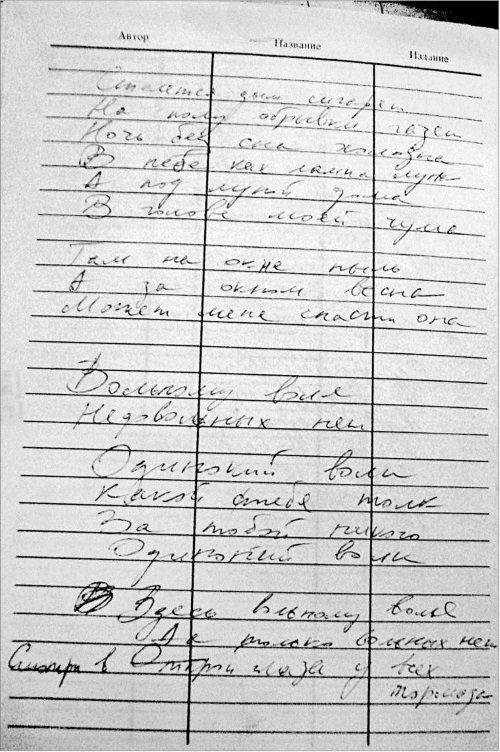 Автор Название Издание
Стелется дым сигарет
На полу обрывки газет
Ночь без сна холодна
В небе как лампа луна
А под луной дома
В голове моей чума
Там на окне пыль
А за окном весна
Может меня спасти она
Вольному воля
Недовольных нет
Одинокий волк
Какой с тебя толк
За тобой никого
Одинокий волк
Здесь вольному воля
Да только вольных нет
Смотри в Открой глаза у всех
тормоза